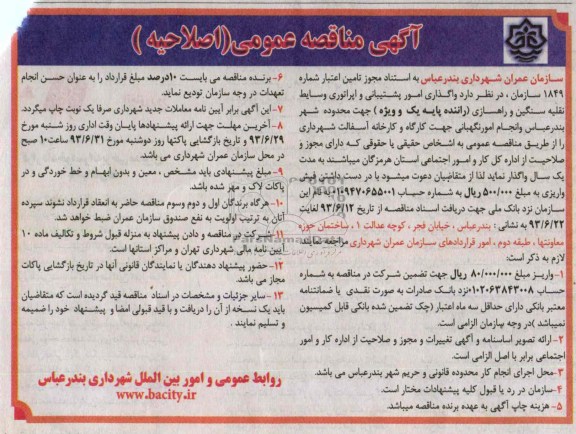 آگهی مناقصه عمومی(اصلاحیه )
سازمان عمران شهرداری بندرعباس به استناد مجوز تامین اعتبار شماره
۱۸۴۹ سازمان ، در نظر دارد واگذاری امور پشتیبانی و اپراتوری وسایط
نقلیه سنگین و راهسازی (راننده پایه یک و ویژه ) جهت محدوده شهر
بندرعباس وانجام امورنگهبانی جهت کارگاه و کارخانه آسفالت شهرداری
را از طریق مناقصه عمومی به اشخاص حقیقی یا حقوقی که دارای مجوز و
صلاحیت از اداره کل کار و امور اجتماعی استان هرمزگان میباشند به مدت
یک سال واگذار نماید لذا از متقاضیان دعوت میشود با در دست داشتن فیش
واریزی به مبلغ ۵۰۰/۰۰۰ ریال به شماره حساب ۰۱۰۹۴۷۰۶۵۵۰۰۱ به نام این
سازمان نزد بانک ملی جهت دریافت اسناد مناقصه از تاریخ ۹۳/۶/۱۲ لغایت
۹۳/۶/۲۲ به نشانی : بندرعباس ، خیابان فجر ، کوچه عدالت ۱ ، ساختمان حوزه
معاونتها ، طبقه دوم ، امور قراردادهای سازمان عمران شهرداری مراجعه نمایند
لازم به ذکر است:
۱-واریـز مبلغ ۸۰/۰۰۰/۰۰۰ ریال جهت تضمین شرکت در مناقصه به شماره
حساب ۰۱۰۲۰۶۳۸۴۳۰۰۸ نزد بانک صادرات به صورت نقدی یا ضمانتنامه
معتبر بانکی دارای حداقل سه ماه اعتبار (چک تضمین شده بانکی قابل کمیسیون
نمیباشد )در وجه سازمان الزامی است.
۲-ارائه تصویر اساسنامه و آگهی تغییرات و مجوز و صلاحیت از اداره کار و امور
اجتماعی برابر با اصل الزامی است.
۳-محل اجرای انجام کار محدوده قانونی و حریم شهر بندرعباس می باشد.
۴-سازمان در رد یا قبول کلیه پیشنهادات مختار است.
۵- هزینه چاپ آگهی به عهده برنده مناقصه میباشد.
۶-برنـده مناقصه می بایست ۱۰درصد مبلغ قرارداد را به عنوان حسن انجام
تعهدات در وجه سازمان تودیع نماید.
۷-این آگهی برابر آیین نامه معاملات جدید شهرداری صرفا یک نوبت چاپ میگردد.
۸-آخریـن مهلـت جهت ارائه پیشنـهادها پایـان وقت اداری روز شنـبه مورخ
۹۳/۶/۲۹ و تاریخ بازگشایی پاکتها روز دوشنبه مورخ ۹۳/۶/۳۱ ساعت۱۰ صبح
در محل سازمان عمران شهرداری می باشد.
۹- مبلغ پیشنهادی باید مشخص ، معین و بدون ابهام و خط خوردگی و در
پاکات لاک و مهر شده باشد.
۱۰-هرگاه برندگان اول و دوم وسوم مناقصه حاضر به انعقاد قرارداد نشوند سپرده
آنان به ترتیب اولویت به نفع صندوق سازمان عمران ضبط خواهد شد.
۱۱-شـرکت در مناقصه و دادن پیشنهاد به منزله قبول شروط و تکالیف ماده ۱۰
آیین نامه مالی شهرداری تهران و مراکز استانها است.
۱۲-حضور پیشنهاد دهندگان یا نمایندگان قانونی آنها در تاریخ بازگشایی پاکات
مجاز می باشد.
۱۳-سایر جزئیات و مشخصات در اسناد مناقصه قید گردیده است که متقاضیان
باید یک نسخه از آن را دریافت و با قید قبولی امضا و پیشنهاد خود را ضمیمه
و تسلیم نمایند .
روابط عمومی و امور بین الملل شهرداری بندرعباس
www.bacity.ir